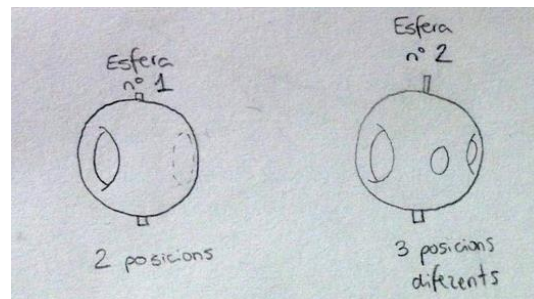 Esfera
nº 1
2 posicions
Esfera
nº 2
3 posicions
diferents